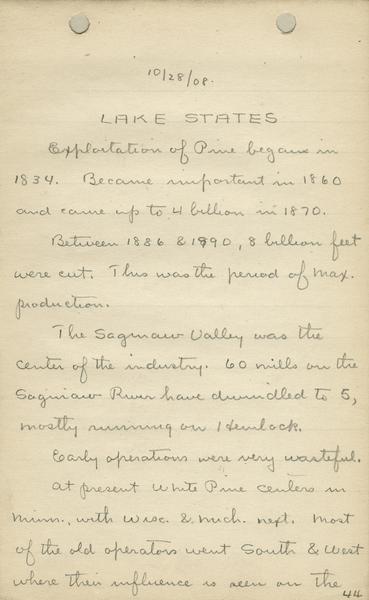 10/28/08.
LAKE STATES
Exploitation of Pine began in
1834. Became important in 1860
and came up to 4 billion in 1870.
Between 1886 & 1890, 8 billion feet
were cut. This was the period of max.
production.
The Saginaw Valley was the
center of the industry. 60 mills on the
Saginaw River have dwindled to 5,
mostly running on Hemlock.
Early operations were very wasteful.
At present White Pine centers in
Minn., with Wisc. & Mich. next. Most
of the old operators went South & West
where their influence is seen on the
44